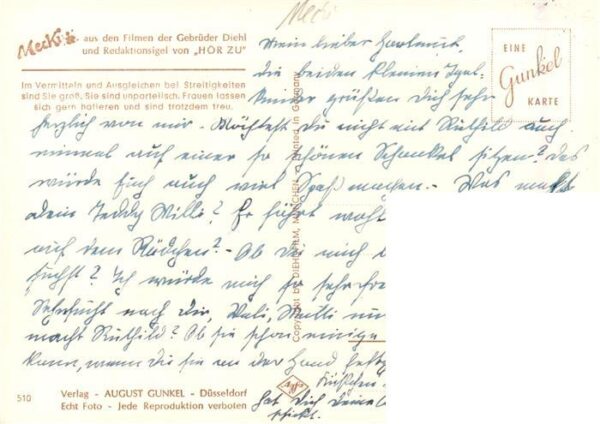 Mecki
Mecki aus den Filmen der Gebrüder Diehl
und Redaktionsigel von „HÖR ZU"
Im Vermitteln und Ausgleichen bei Streitigkeiten
sind Sie groß, Sie sind unparteiisch. Frauen lassen
sich gern halieren und sind trotzdem treu.
EINE
Gunkel
KARTE
Mein lieber Hartmut,
die beiden kleinen Igel-
kinder grüßen Dich sehr
herzlich von mir. - Möchtest du nicht mit Ruthild auch
einmal auf einer so schönen Schaukel sitzen? Das
würde Euch auch viel Spaß machen. - Was macht
dein Teddy Willi? Er fährt wohl
auf dem Rädchen? - Ob du mich
suchst? Ich würde mich so sehr
Sehnsucht nach dir,
macht Ruthild? Ob sie schon einige
kann, wenn du sie an der Hand
hat Dich Deine
Copyright by DIEHLFILM, MÜNCHEN Printed in Germany
510
Verlag - AUGUST GUNKEL - Düsseldorf
Echt Foto - Jede Reproduktion verboten
Agfa